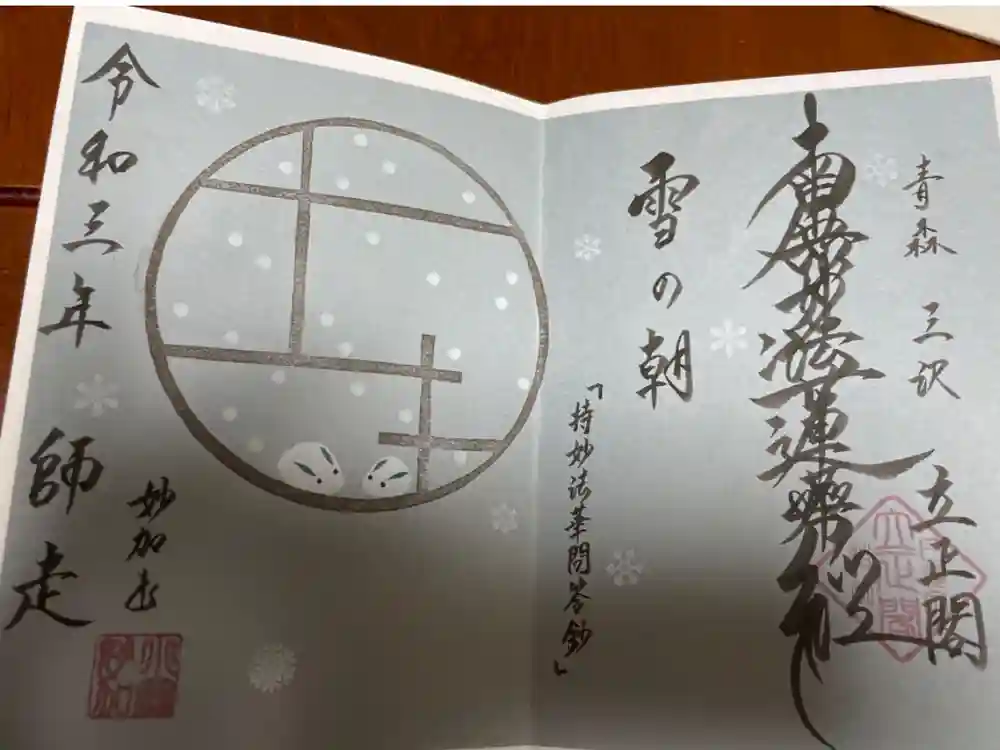 青森 三沢
立正閣
南無妙法蓮華経
雪の朝
「持妙法華問答鈔」
令和三年 師走